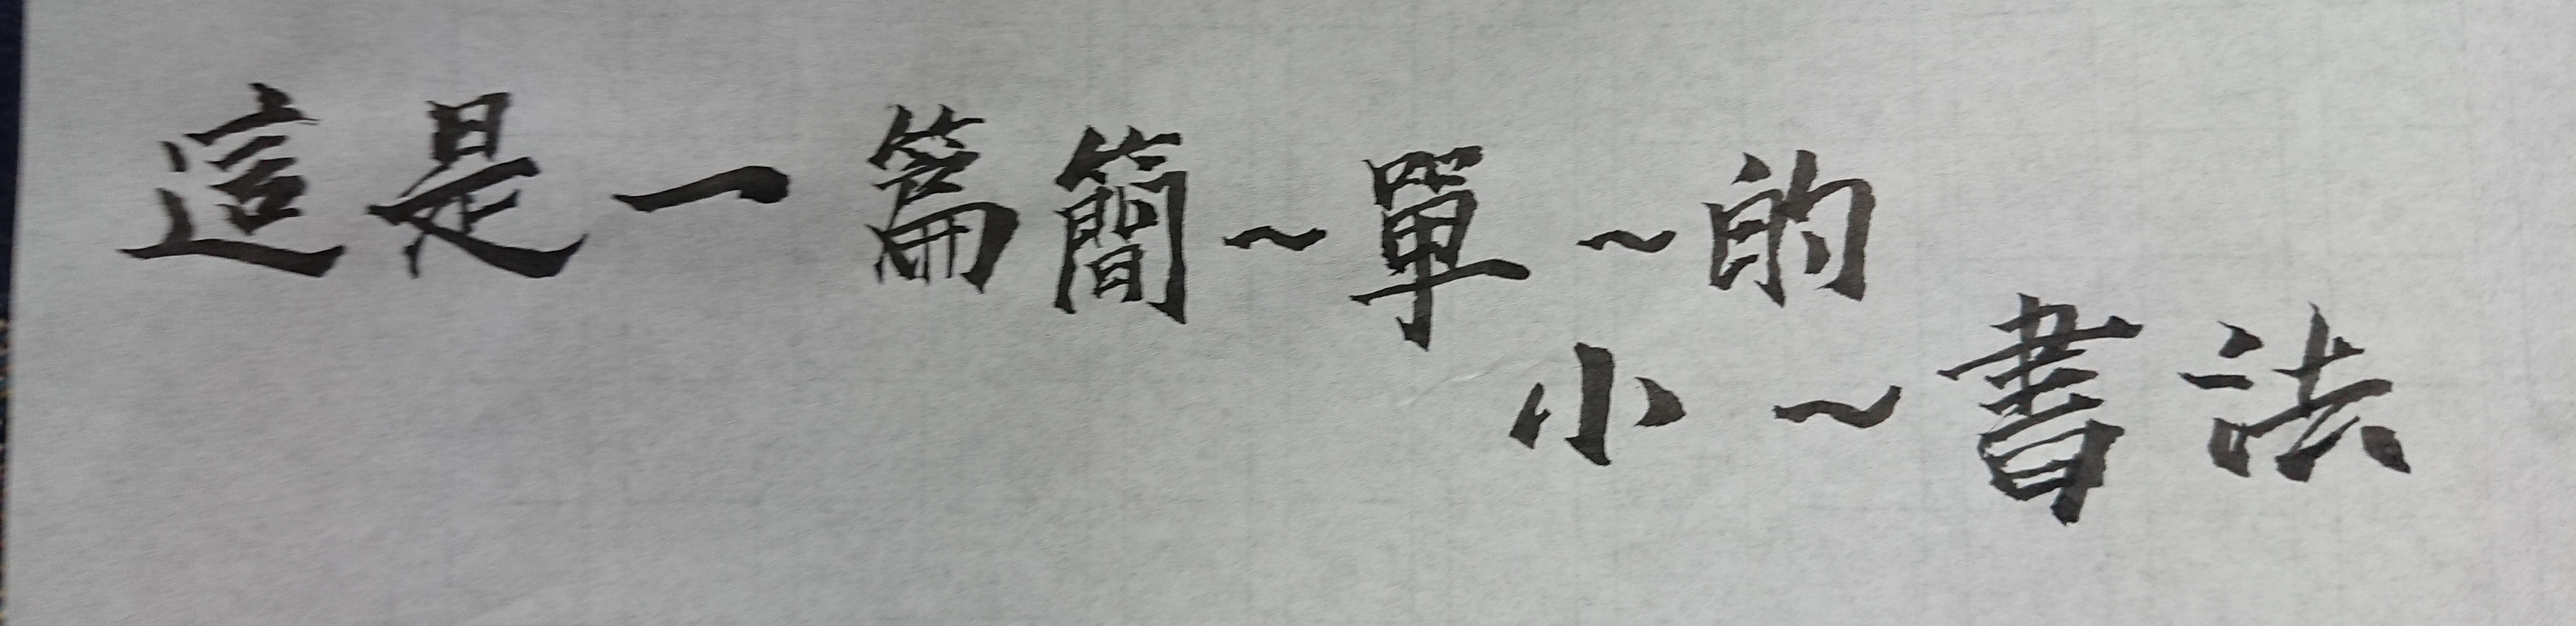 這是一篇簡~單~的
小~書法